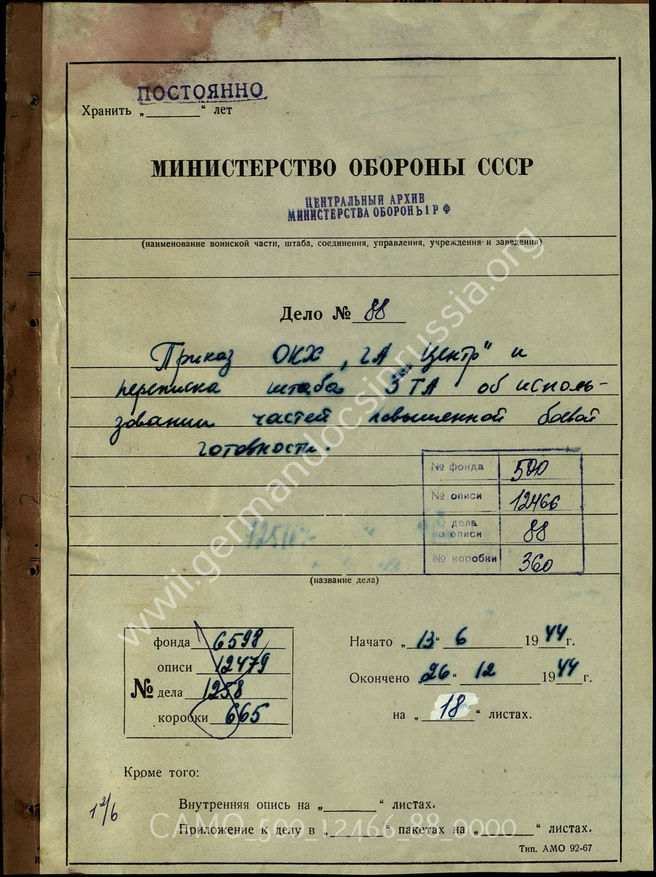 ПОСТОЯННО
Хранить „ “ лет
МИНИСТЕРСТВО ОБОРОНЫ СССР
ЦЕНТРАЛЬНЫЙ АРХИВ
МИНИСТЕРСТВА ОБОРОНЫ РФ
(наименование воинской части, штаба, соединения, управления, учреждения и заведения)
Дело № 88
Приказ ОКХ, ГА „Центр“ и
переписка штаба 3 ТА об исполь-
зовании частей повышенной боевой
готовности.
№ фонда 500
№ описи 12466
№ дела по описи 88
№ коробки 360
(название дела)
фонда 6598
описи 12479
№ дела 1258
коробки 665
Начато „13“ 6 1944 г.
Окончено „26“ 12 1944 г.
на „18“ листах.
Кроме того:
Внутренняя опись на „ “ листах.
Приложение к делу в „ “ пакетах на „ “ листах.
Тип. АМО 92-67
wwii.germandocsinrussia.org
CAMO_500_12466_88_0000